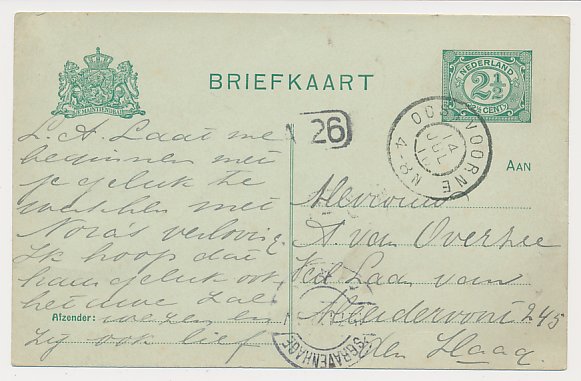 NEDERLAND
2½
2½ CENT
JE MAINTIENDRAI
BRIEFKAART
OOSTVOORNE
14 JUL
4-8 N
26
AAN
L. A. Laat me
beginnen met
je geluk te
wenschen met
Nora's verloving.
Ik hoop dat
haar geluk ook
het uwe zal
Afzender: wezen en
zij ook lief
Mevrouw
A van Oversee
Laan van
Meerdervoort 245
Den Haag.
'S GRAVENHAGE